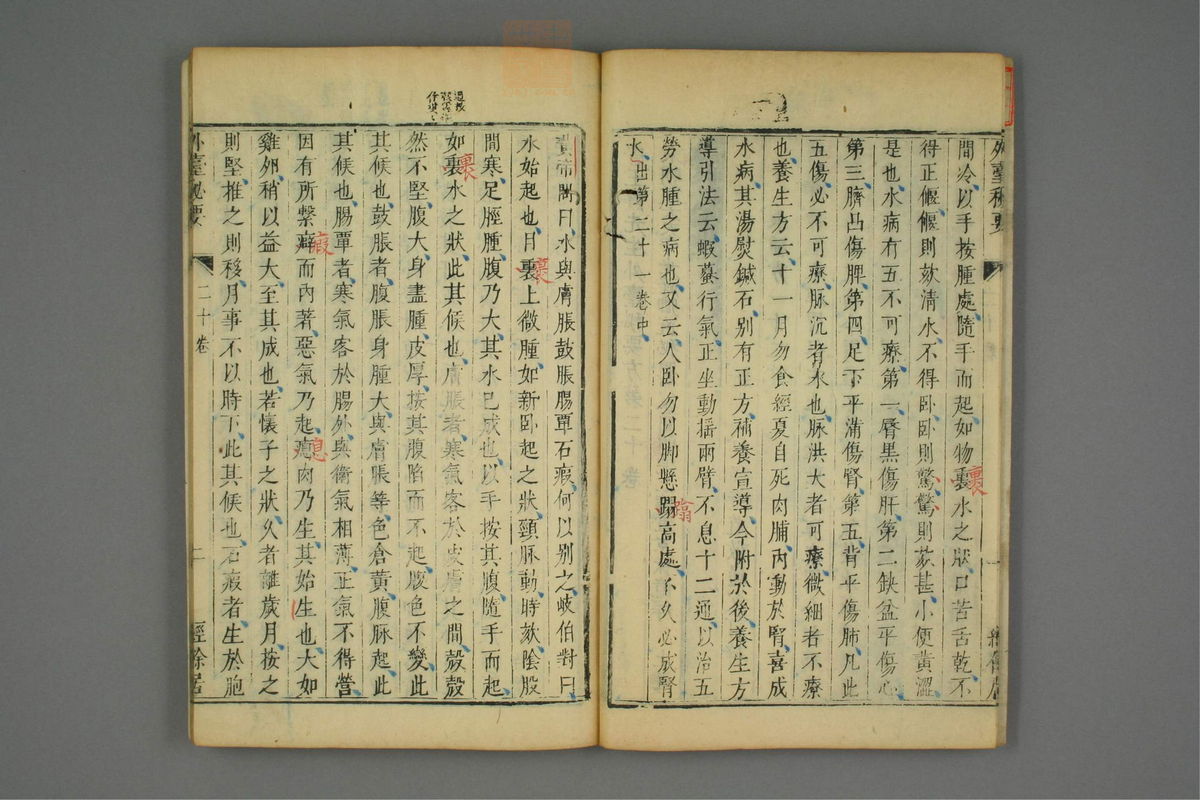 外臺秘要
間冷以手按腫處隨手而起如物裏水之狀口苦舌乾不
裹
得正偃偃則欬清水不得卧卧則驚驚則欬甚小便黃澀
是也水病有五不可療第一脣黑傷肝第二缺盆平傷心
第三臍凸傷脾第四足下平滿傷腎第五背平傷肺凡此
五傷必不可療脉沉者水也脉洪大者可療微細者不療
也養生方云十一月勿食經夏自死肉脯内動於腎喜成
水病其湯熨鍼石别有正方補養宣導今附於後養生方
導引法云蝦蟇行氣正坐動摇兩臂不息十二通以治五
勞水腫之病也又云人卧勿以脚懸蹋高處不久必成腎
水出第二十一卷中
黃帝問曰水與膚脹鼓脹腸覃石瘕何以别之岐伯對曰
水始起也目裏上微腫如新卧起之狀頸脉動時欬陰股
裹
間寒足脛腫腹乃大其水已成也以手按其腹隨手而起
如裏水之狀此其候也膚脹者寒氣客於皮膚之間殼殼
裹
然不堅腹大身盡腫皮厚按其腹陷而不起腹色不變此
其候也鼓脹者腹脹身腫大與膚脹等色倉黃腹脉起此
其候也腸覃者寒氣客於腸外與衛氣相薄正氣不得營
因有所繫癖而内著惡氣乃起瘜肉乃生其始生也大如
瘕
息
雞卵稍以益大至其成也若懷子之狀久者離歲月按之
則堅推之則移月事不以時下此其候也石瘕者生於胞
外臺秘要
二十卷
二
經餘居